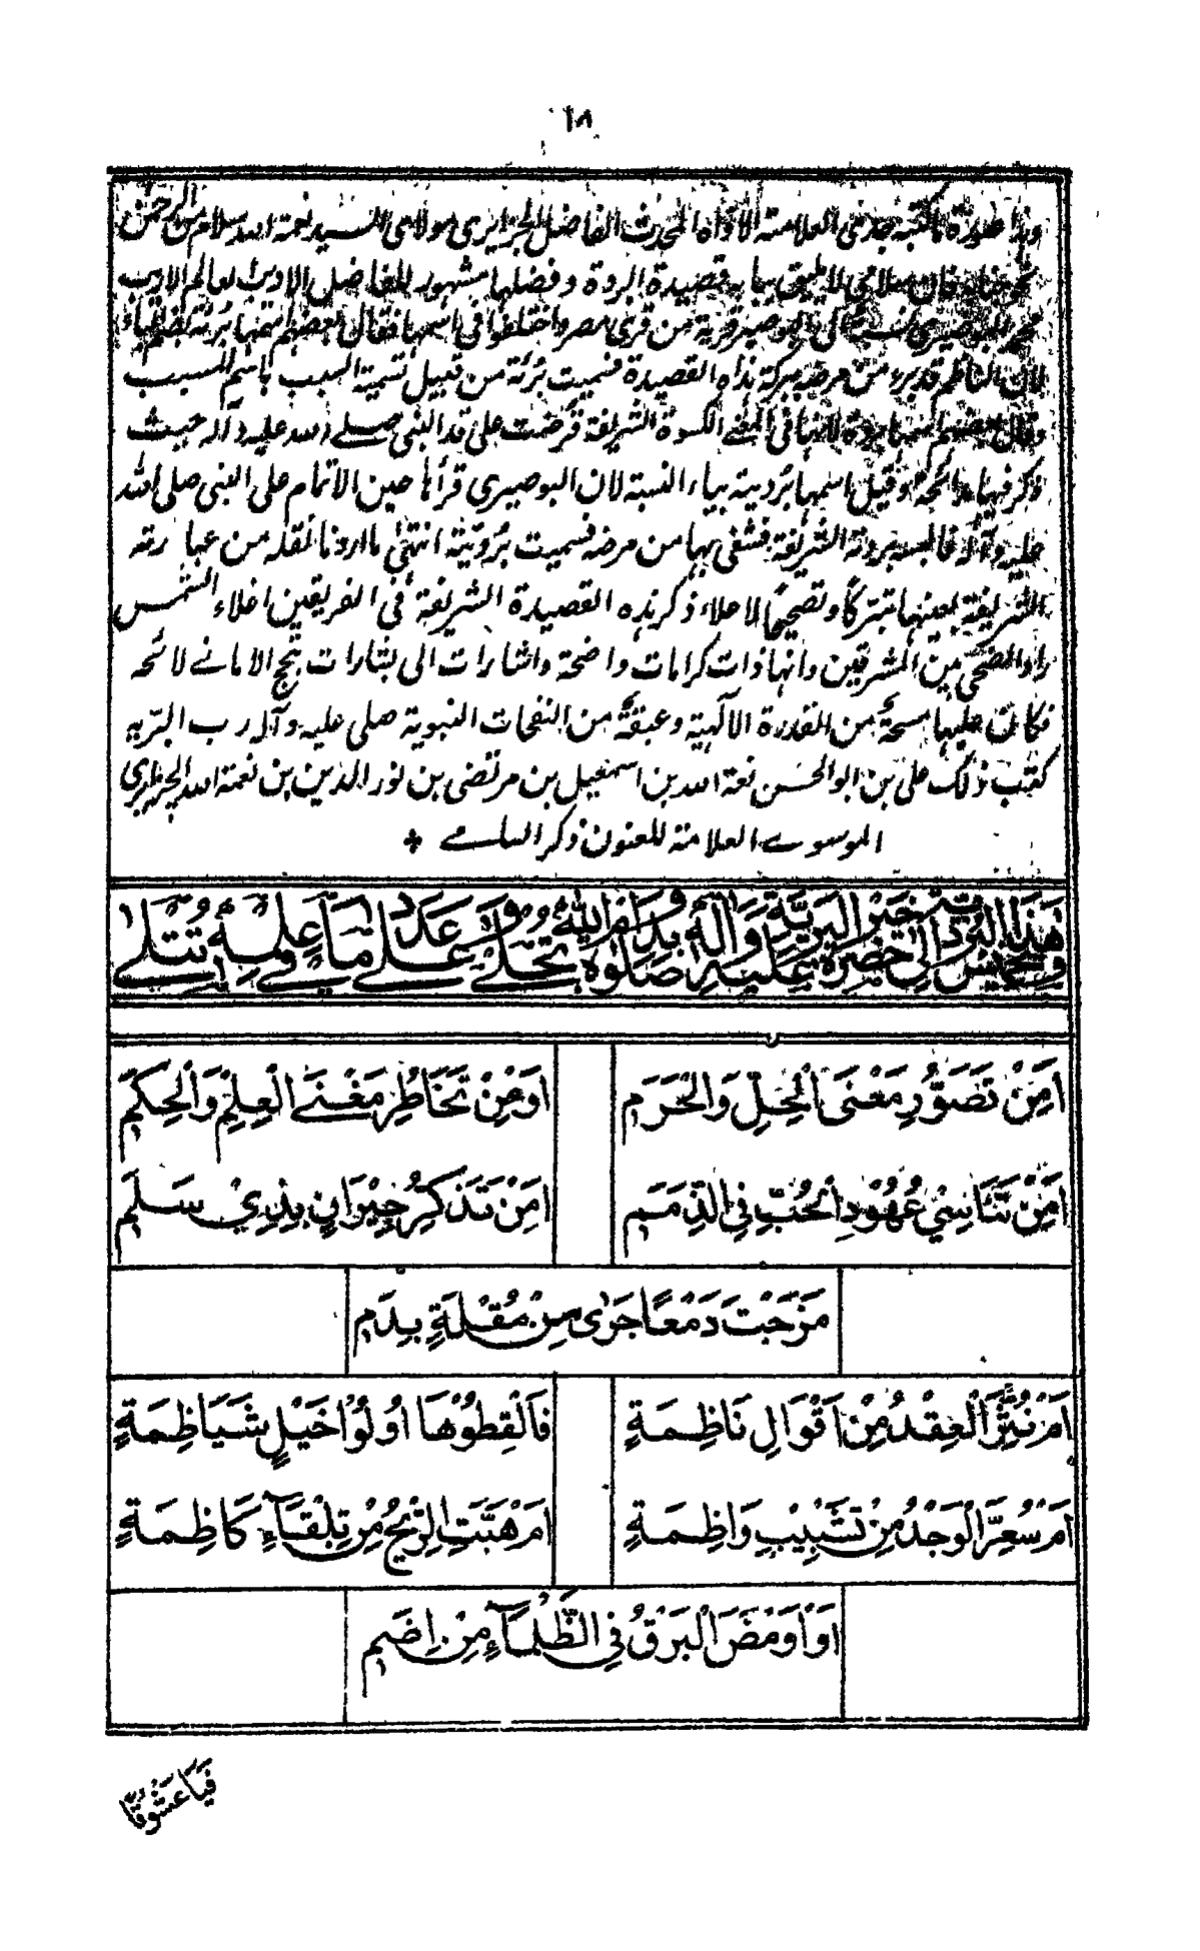 ١٨
وهذا صورة ما كتبه جدي العلامة الاواه المحدث الفاضل الجزايري مولائي السيد نعمة الله سلام من الرحمن
قصيدة البردة وفضلها مشهور للفاضل الاديب لعالم الاريب
البوصيري قرية من قرى مصر واختلفوا في اسمها فقال بعضهم اسمها بُرْئَة
لان الناظم قد برء من مرضه ببركة هذه القصيدة فسميت بُرْئَة من قبيل تسمية السبب باسم المسبب
وقال بعضهم اسمها بردة لانها في المعنى الكسوة الشريفة قرضت على قد النبي صلى الله عليه وآله حيث
ذكر فيها مدائحه وقيل اسمها بُرْدِية بياء النسبة لان البوصيري قرأها حين الاتمام على النبي صلى الله
عليه وآله فالبسه بردته الشريفة فشفى بها من مرضه فسميت بُرْدِيّة انتهى ما اردنا نقله من عبارته
الشريفة بعينها تبركًا وتصحيحًا لاعلاء ذكر هذه القصيدة الشريفة في الفريقين اعلاء الشمس
رأد الضحى بين المشرقين وانها ذات كرامات واضحة واشارات الى بشارات بنجح الاماني لائحه
فكان عليها مسحةٌ من القدرة الالٰهية وعبقةٌ من النفحات النبوية صلى عليه وآله رب البريه
كتب ذلك علي بن ابو الحسن نعمة الله بن اسمعيل بن مرتضى بن نور الدين بن نعمة الله الجزايري
الموسوي العلامة المعنون ذكر السامي
هَذَا البُرْدَ خَيْرِ البَرِيَّةِ وَآلِهِ وَعَدَدَ مَا عَلِمَهُ
وتخميس إلى حضرة عليه صلوة تجلى على ما في قلبه تتلى
اَمِنْ تَصَوُّرِ مَعْنَى الْحِلِّ وَالْحَرَمِ اَوْمِنْ تَخَاطُرِ مَغْنَى الْعِلْمِ وَالْحِكَمِ
اَمِنْ تَنَاسِيْ عُهُوْدِ الْحُبِّ فِي الذِّمَمِ اَمِنْ تَذَكُّرِ جِيْرَانٍ بِذِيْ سَلَمِ
مَزَجْتَ دَمْعًا جَرٰى مِنْ مُقْلَةٍ بِدَمِ
اَمْ نُثِرَ الْعِقْدُ مِنْ اَقْوَالِ نَاظِمَةٍ فَالْقِطُوْهَا اُولُوْا خَيْلٍ شَيَاظِمَةٍ
اَمْ سُعِّرَ الْوَجْدُ مِنْ تَشْبِيْبِ وَاظِمَةٍ اَمْ هَبَّتِ الرِّيْحُ مِنْ تِلْقَآءِ كَاظِمَةٍ
اَوْ اَوْمَضَ الْبَرْقُ فِي الظَّلْمَآءِ مِنْ اِضَمِ
فَيَا عَشُوْقًا